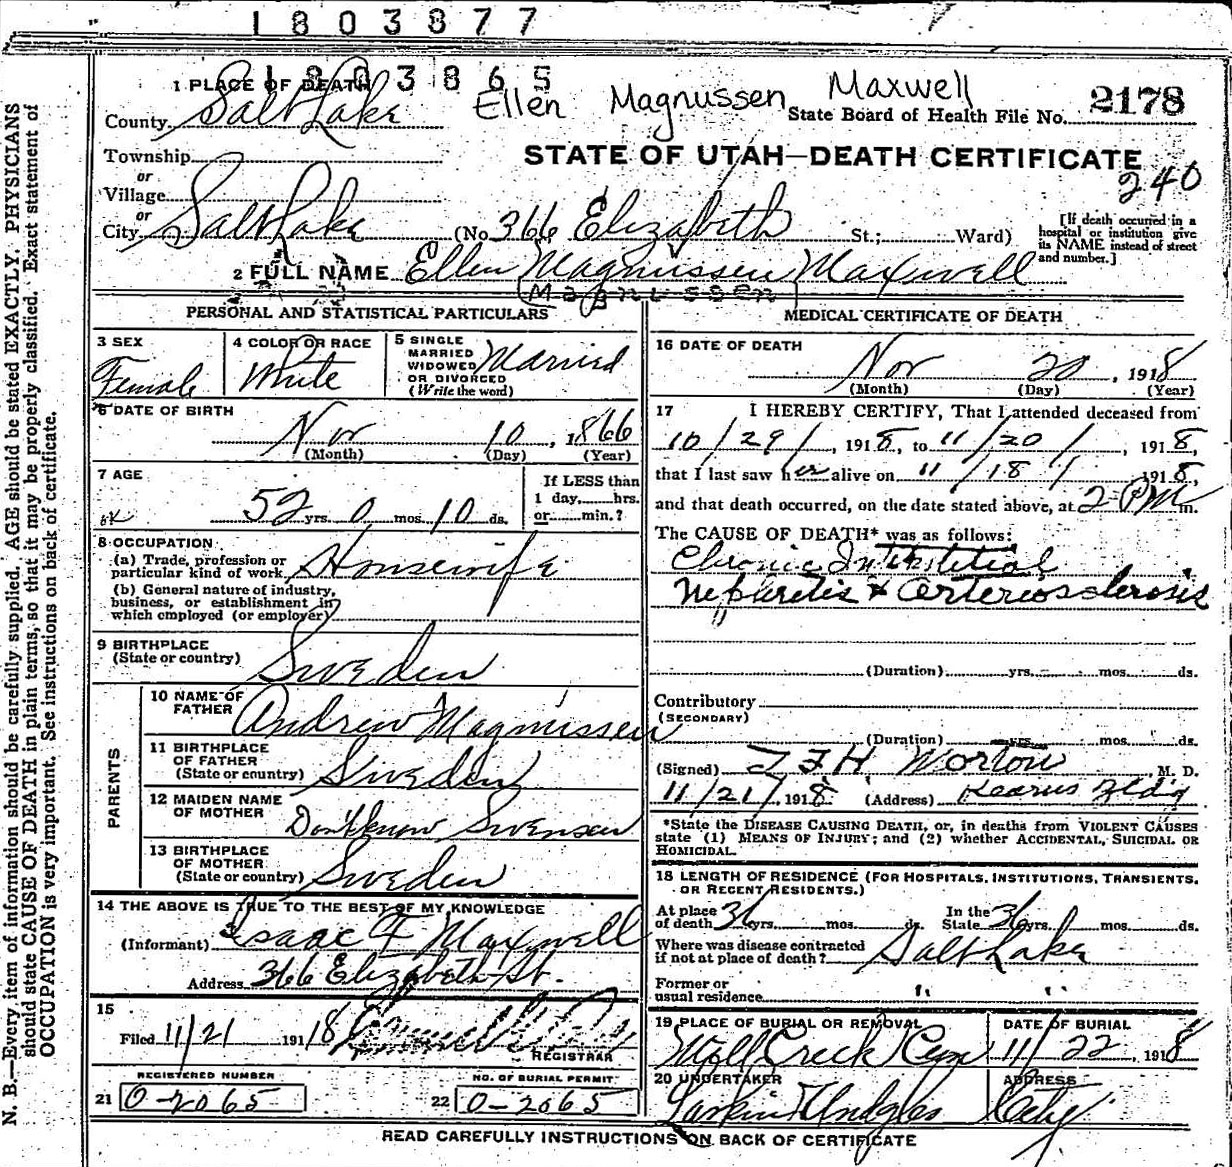 1803877
1803865
Ellen Magnussen Maxwell
1 PLACE OF DEATH
County Salt Lake
State Board of Health File No. 2178
Township
or
Village
or
City Salt Lake
STATE OF UTAH—DEATH CERTIFICATE
240
(No 366 Elizabeth St.; Ward)
[If death occurred in a
hospital or institution give
its NAME instead of street
and number.]
2 FULL NAME Ellen Magnussen Maxwell
(Magnussen)
PERSONAL AND STATISTICAL PARTICULARS
3 SEX
Female
4 COLOR OR RACE
White
5 SINGLE
MARRIED
WIDOWED
OR DIVORCED
(Write the word)
Married
6 DATE OF BIRTH
Nov 10, 1866
(Month) (Day) (Year)
7 AGE
52 yrs. 0 mos. 10 ds.
If LESS than
1 day, hrs.
or min.?
8 OCCUPATION
(a) Trade, profession or
particular kind of work Housewife
(b) General nature of industry,
business, or establishment in
which employed (or employer)
9 BIRTHPLACE
(State or country) Sweden
PARENTS
10 NAME OF
FATHER Andrew Magnussen
11 BIRTHPLACE
OF FATHER
(State or country) Sweden
12 MAIDEN NAME
OF MOTHER Don't know Swensen
13 BIRTHPLACE
OF MOTHER
(State or country) Sweden
14 THE ABOVE IS TRUE TO THE BEST OF MY KNOWLEDGE
(Informant) Isaac F Maxwell
Address 366 Elizabeth St.
15
Filed 11/21 1918
REGISTRAR
REGISTERED NUMBER
21 0-2065
NO. OF BURIAL PERMIT
22 0-2065
MEDICAL CERTIFICATE OF DEATH
16 DATE OF DEATH
Nov 20, 1918
(Month) (Day) (Year)
17 I HEREBY CERTIFY, That I attended deceased from
10/29/, 1918, to 11/20/, 1918,
that I last saw her alive on 11/18/, 1918,
and that death occurred, on the date stated above, at 2 PM m.
The CAUSE OF DEATH* was as follows:
Chronic Interstitial
Nephretis & Arterioosclerosis
(Duration) yrs. mos. ds.
Contributory
(SECONDARY)
(Duration) yrs. mos. ds.
(Signed) Worton M. D.
11/21/, 1918 (Address) Kearns Bldg
*State the DISEASE CAUSING DEATH, or, in deaths from VIOLENT CAUSES
state (1) MEANS OF INJURY; and (2) whether ACCIDENTAL, SUICIDAL OR
HOMICIDAL.
18 LENGTH OF RESIDENCE (FOR HOSPITALS, INSTITUTIONS, TRANSIENTS,
OR RECENT RESIDENTS.)
At place
of death 36 yrs. mos. ds.
In the
State 36 yrs. mos. ds.
Where was disease contracted
if not at place of death? Salt Lake
Former or
usual residence " "
19 PLACE OF BURIAL OR REMOVAL
Mill Creek Cem
DATE OF BURIAL
11/22, 1918
20 UNDERTAKER
Larkin
ADDRESS
City
READ CAREFULLY INSTRUCTIONS ON BACK OF CERTIFICATE
N. B.—Every item of information should be carefully supplied. AGE should be stated EXACTLY. PHYSICIANS
should state CAUSE OF DEATH in plain terms, so that it may be properly classified. Exact statement of
OCCUPATION is very important. See instructions on back of certificate.